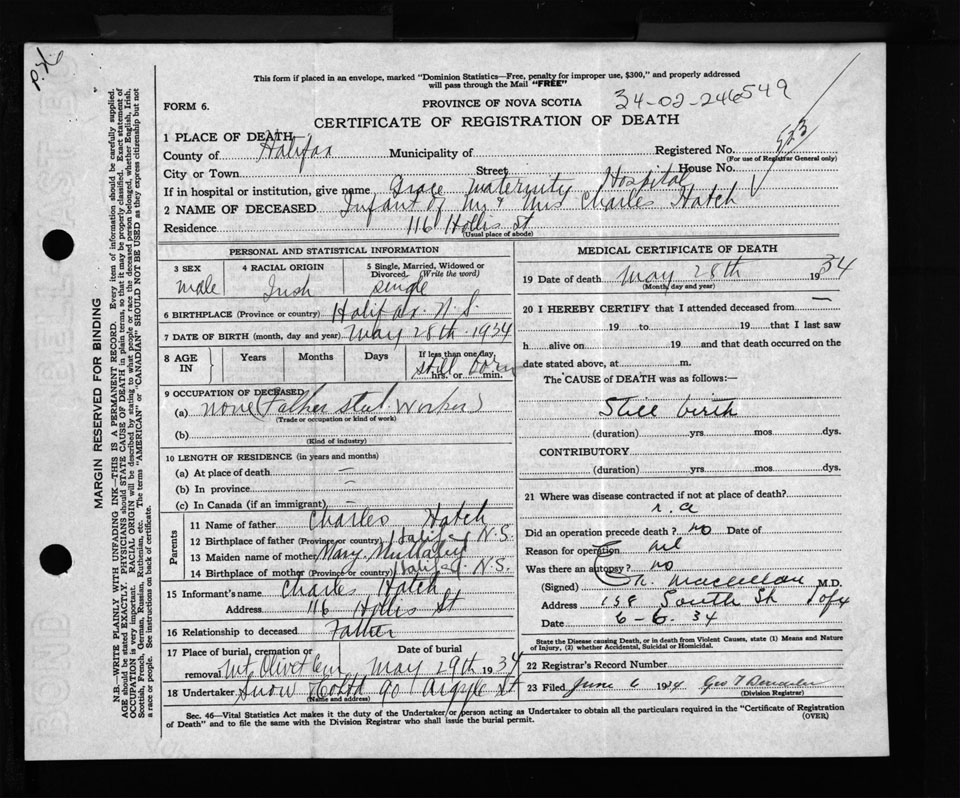 This form if placed in an envelope, marked "Dominion Statistics—Free, penalty for improper use, $300," and properly addressed
will pass through the Mail "FREE"
FORM 6.
PROVINCE OF NOVA SCOTIA
34-02-246549
CERTIFICATE OF REGISTRATION OF DEATH
523
1 PLACE OF DEATH
County of Halifax Municipality of Registered No.
(For use of Registrar General only)
City or Town Street House No.
If in hospital or institution, give name Grace Maternity Hospital
2 NAME OF DECEASED Infant of Mr & Mrs Charles Hatch
Residence 116 Hollis St
(Usual place of abode)
PERSONAL AND STATISTICAL INFORMATION
3 SEX 4 RACIAL ORIGIN 5 Single, Married, Widowed or Divorced. (Write the word)
male Irish single
6 BIRTHPLACE (Province or country) Halifax. N.S
7 DATE OF BIRTH (month, day and year) May 28th 1934
8 AGE IN Years Months Days If less than one day
hrs. or min.
still born
9 OCCUPATION OF DECEASED
(a) none (Father steel worker)
(Trade or occupation or kind of work)
(b)
(Kind of industry)
10 LENGTH OF RESIDENCE (in years and months)
(a) At place of death —
(b) In province —
(c) In Canada (if an immigrant) —
Parents
11 Name of father Charles Hatch
12 Birthplace of father (Province or country) Halifax N.S.
13 Maiden name of mother Mary
14 Birthplace of mother (Province or country) Halifax N.S.
15 Informant's name Charles Hatch
Address 116 Hollis St
16 Relationship to deceased Father
17 Place of burial, cremation or removal Date of burial
Mt Olivet Cem May 29th 1934
18 Undertaker Snow & Co Ltd 90 Argyle St
(Name and address)
MEDICAL CERTIFICATE OF DEATH
19 Date of death May 28th 1934
(Month, day and year)
20 I HEREBY CERTIFY that I attended deceased from —
19 to 19 that I last saw
h alive on 19 and that death occurred on the
date stated above, at m.
The CAUSE of DEATH was as follows:—
Still birth
(duration) yrs mos dys.
CONTRIBUTORY
(duration) yrs mos dys.
21 Where was disease contracted if not at place of death?
Did an operation precede death? no Date of
Reason for operation
Was there an autopsy? no
(Signed) Maclellan M.D.
Address 158 South St
Date 6-6.34
State the Disease causing Death, or in death from Violent Causes, state (1) Means and Nature
of Injury, (2) whether Accidental, Suicidal or Homicidal.
22 Registrar's Record Number
23 Filed June 6 1934 Geo
(Division Registrar)
Sec. 46—Vital Statistics Act makes it the duty of the Undertaker or person acting as Undertaker to obtain all the particulars required in the "Certificate of Registration
of Death" and to file the same with the Division Registrar who shall issue the burial permit.
(OVER)
MARGIN RESERVED FOR BINDING
N.B.—WRITE PLAINLY WITH UNFADING INK—THIS IS A PERMANENT RECORD. Every item of information should be carefully supplied.
AGE should be stated EXACTLY. PHYSICIANS should STATE CAUSE OF DEATH in plain terms, so that it may be properly classified. Exact statement of
OCCUPATION is very important. RACIAL ORIGIN will be described by stating to what people or race the deceased person belonged, whether English, Irish,
Scottish, French, German, Russian, Ruthenian, etc. The terms "AMERICAN" or "CANADIAN" SHOULD NOT BE USED as they express citizenship but not
a race or people. See instructions on back of certificate.